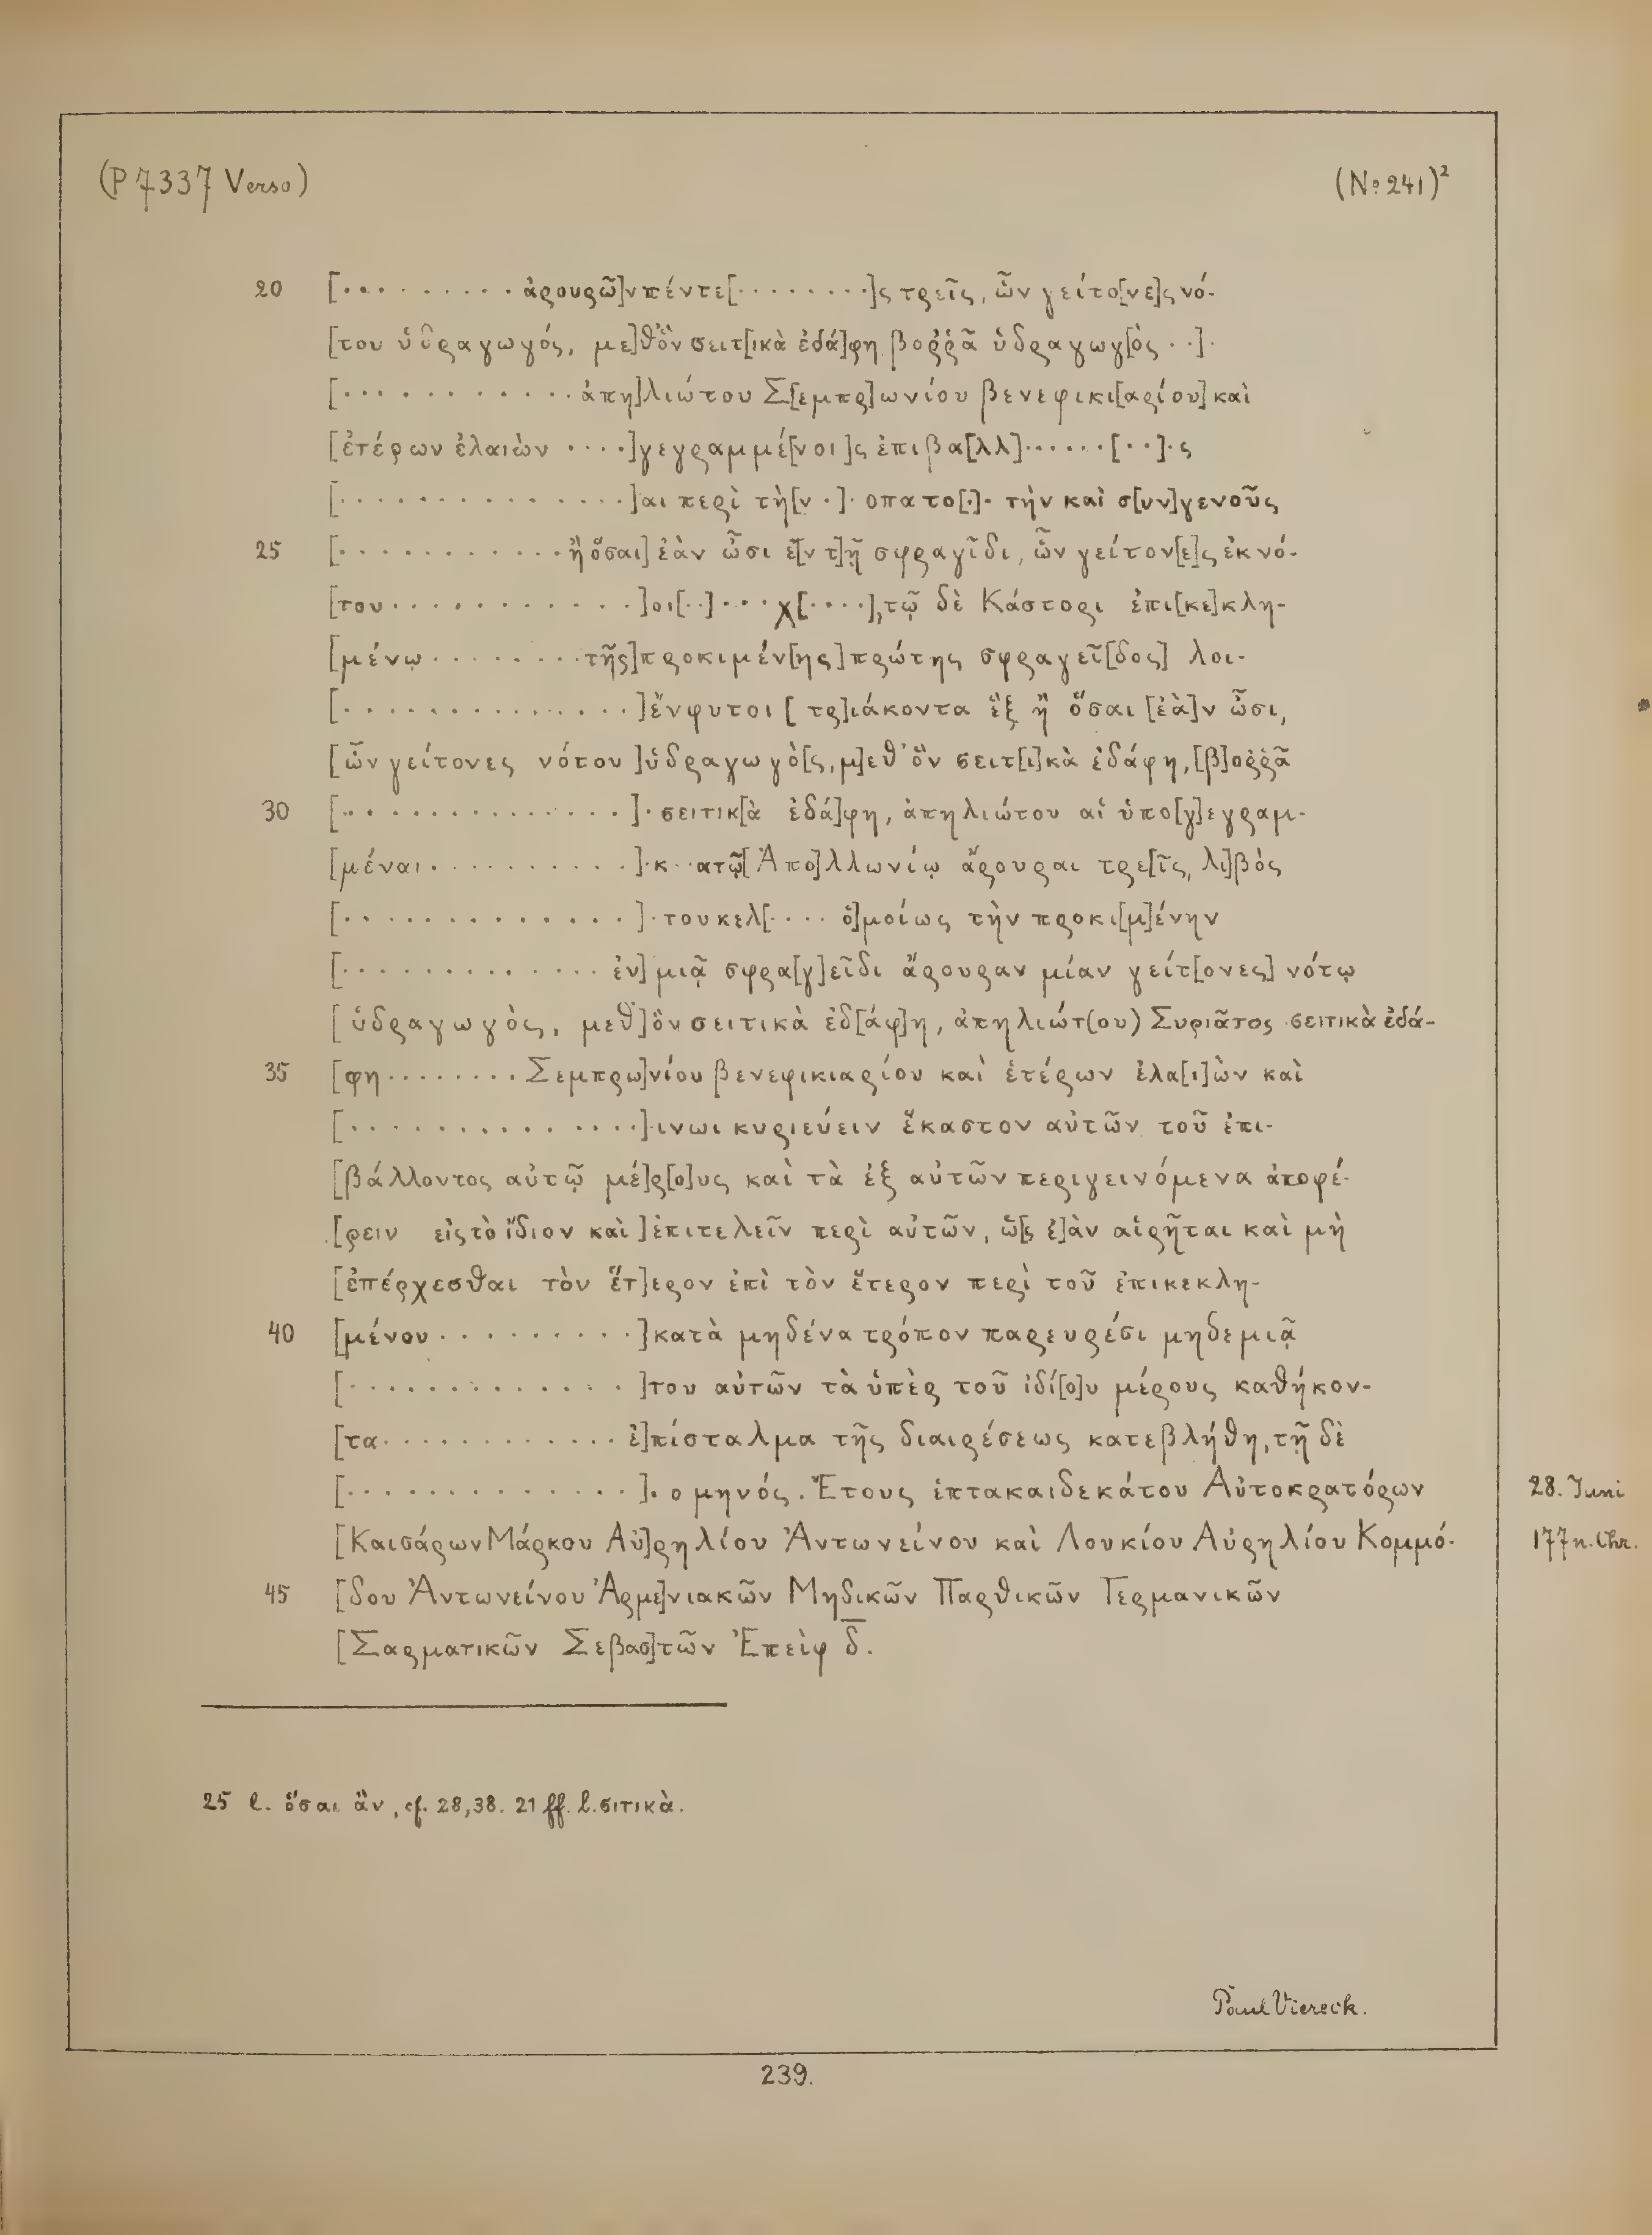 (P 7337 Verso) (No 241)²
20 [·· · · · · · · · · ἀρουρῶ]ν πέντε[· · · · · · · ·]ς τρεῖς, ὧν γείτο[νε]ς νό-
[του ὑδραγωγός, με]θ’ ὃν σειτ[ικὰ ἐδά]φη βορρᾶ ὑδραγωγ[ὸς · ·]·
[· · · · · · · · · · · · ἀπη]λιώτου Σ[εμπρ]ωνίου βενεφικι[αρίου] καὶ
[ἑτέρων ἐλαιὼν · · · ·]γεγραμμέ[νοι]ς ἐπιβα[λλ]······[··]·ς
[· · · · · · · · · · · · · · ·]αι περὶ τὴ[ν ·]· οπατο[·]· τὴν καὶ σ[υν]γενοῦς
25 [· · · · · · · · · · · · ἢ ὅσαι] ἐὰν ὦσι ἐ[ν τ]ῇ σφραγῖδι, ὧν γείτον[ε]ς ἐκ νό-
[του · · · · · · · · · · · · ·]οι[··]···χ[····], τῷ δὲ Κάστορι ἐπι[κε]κλη-
[μένῳ · · · · · · · · τῆς] προκιμέν[ης] πρώτης σφραγεῖ[δος] λοι-
[· · · · · · · · · · · · · · ·]ἔνφυτοι [τρ]ιάκοντα ἓξ ἢ ὅσαι [ἐὰ]ν ὦσι,
[ὧν γείτονες νότου] ὑδραγωγὸ[ς, μ]εθ’ ὃν σειτ[ι]κὰ ἐδάφη, [β]ορρᾶ
30 [·· · · · · · · · · · · · · ·]· σειτικ[ὰ ἐδά]φη, ἀπηλιώτου αἱ ὑπο[γ]εγραμ-
[μέναι · · · · · · · · · · ·]·κ··ατῷ [Ἀπο]λλωνίῳ ἄρουραι τρε[ῖς, λι]βὸς
[· · · · · · · · · · · · · ·]· τουκελ[· · · · ὁ]μοίως τὴν προκι[μ]ένην
[· · · · · · · · · · · · · ἐν] μιᾷ σφρα[γ]εῖδι ἄρουραν μίαν γείτ[ονες] νότῳ
[ὑδραγωγὸς, μεθ’] ὃν σειτικὰ ἐδ[άφ]η, ἀπηλιώτ(ου) Συριᾶτος σειτικὰ ἐδά-
35 [φη · · · · · · · · Σεμπρω]νίου βενεφικιαρίου καὶ ἑτέρων ἐλα[ι]ὼν καὶ
[· · · · · · · · · · · · · · ·]·ινωι κυριεύειν ἕκαστον αὐτῶν τοῦ ἐπι-
[βάλλοντος αὐτῷ μέ]ρ[ο]υς καὶ τὰ ἐξ αὐτῶν περιγεινόμενα ἀποφέ-
[ρειν εἰς τὸ ἴδιον καὶ] ἐπιτελεῖν περὶ αὐτῶν, ὡ[ς ἐ]ὰν αἱρῆται καὶ μὴ
[ἐπέρχεσθαι τὸν ἕτ]ερον ἐπὶ τὸν ἕτερον περὶ τοῦ ἐπικεκλη-
40 [μένου · · · · · · · · · ·]κατὰ μηδένα τρόπον παρευρέσι μηδεμιᾷ
[· · · · · · · · · · · · · ·]του αὐτῶν τὰ ὑπὲρ τοῦ ἰδί[ο]υ μέρους καθήκον-
[τα · · · · · · · · · · · · · ἐ]πίσταλμα τῆς διαιρέσεως κατεβλήθη, τῇ δὲ
[· · · · · · · · · · · · · · ·]· ο μηνός. Ἔτους ἑπτακαιδεκάτου Αὐτοκρατόρων 28. Juni
[Καισάρων Μάρκου Αὐ]ρηλίου Ἀντωνείνου καὶ Λουκίου Αὐρηλίου Κομμό- 177 n. Chr.
45 [δου Ἀντωνείνου Ἀρμε]νιακῶν Μηδικῶν Παρθικῶν Γερμανικῶν
[Σαρματικῶν Σεβασ]τῶν Ἐπεὶφ δ̅.
25 l. ὅσαι ἂν, cf. 28, 38. 21 ff. l. σιτικὰ.
Paul Viereck.
239.